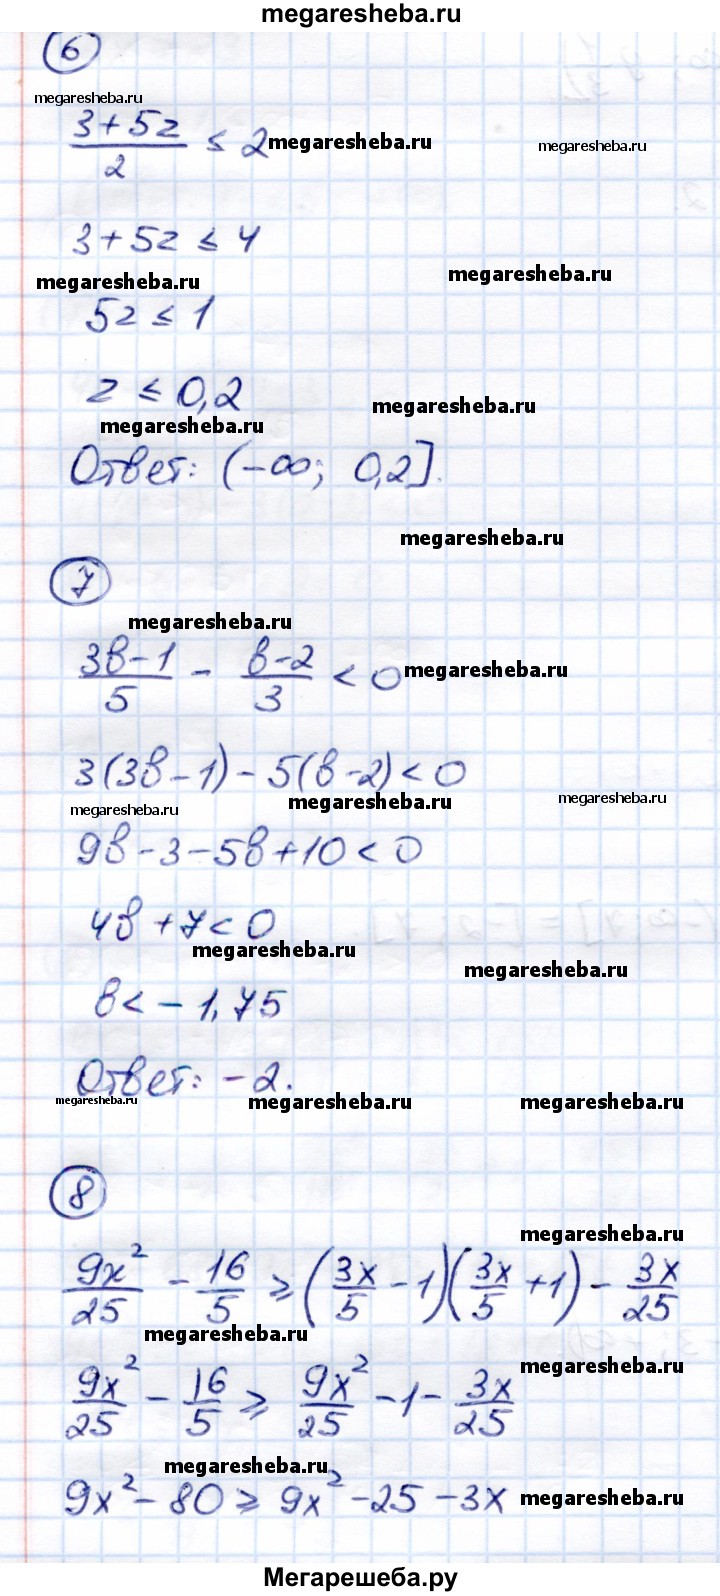 megaresheba.ru
6
megaresheba.ru
(3+5z)/2 ≤ 2 megaresheba.ru megaresheba.ru
3+5z ≤ 4
megaresheba.ru megaresheba.ru
5z ≤ 1
z ≤ 0,2
megaresheba.ru megaresheba.ru
Ответ: (-∞; 0,2].
megaresheba.ru
7
megaresheba.ru
(3в-1)/5 - (в-2)/3 < 0 megaresheba.ru
3(3в-1)-5(в-2)<0
megaresheba.ru megaresheba.ru megaresheba.ru
9в-3-5в+10<0
4в+7<0
megaresheba.ru megaresheba.ru
в<-1,75
Ответ: -2.
megaresheba.ru megaresheba.ru megaresheba.ru
8
megaresheba.ru
9x²/25 - 16/5 ≥ (3x/5 - 1)(3x/5 + 1) - 3x/25
megaresheba.ru megaresheba.ru
9x²/25 - 16/5 ≥ 9x²/25 - 1 - 3x/25
megaresheba.ru
9x²-80 ≥ 9x²-25-3x megaresheba.ru
Мегарешеба.ру